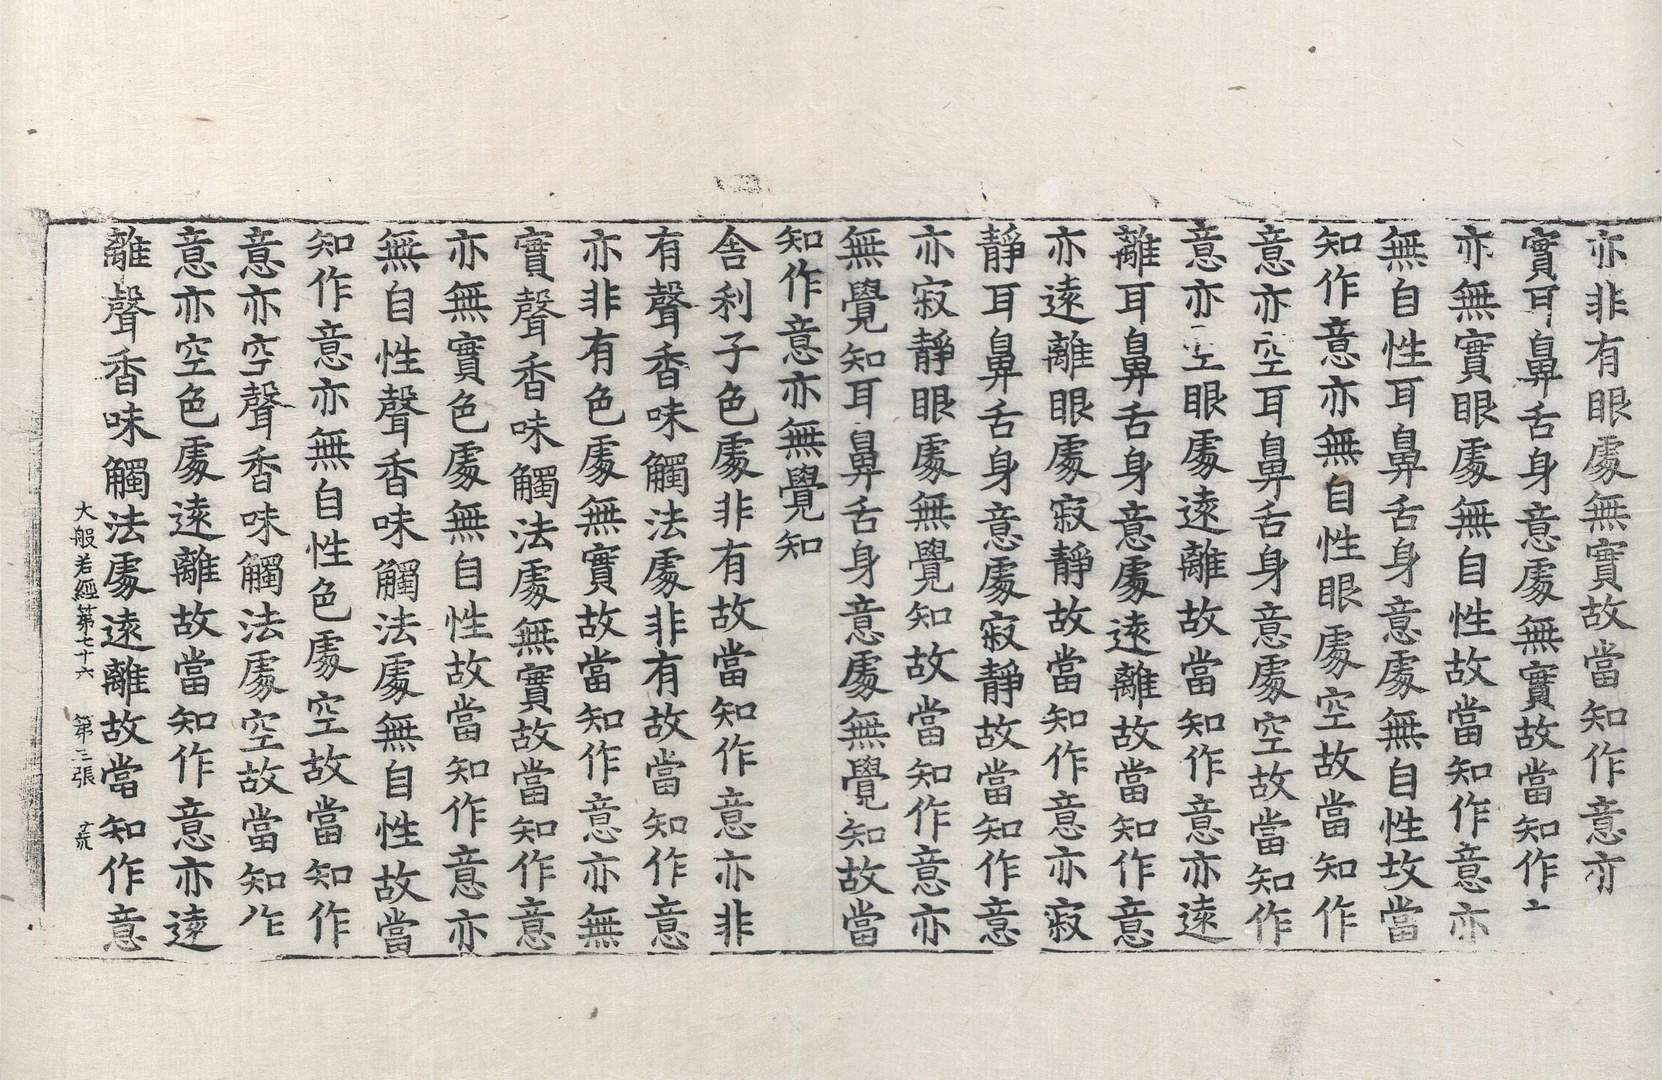 亦非有眼處無實故當知作意亦
實耳鼻舌身意處無實故當知作
亦無實眼處無自性故當知作意亦
無自性耳鼻舌身意處無自性故當
知作意亦無自性眼處空故當知作
意亦空耳鼻舌身意處空故當知作
意亦空眼處遠離故當知作意亦遠
離耳鼻舌身意處遠離故當知作意
亦遠離眼處寂靜故當知作意亦寂
靜耳鼻舌身意處寂靜故當知作意
亦寂靜眼處無覺知故當知作意亦
無覺知耳鼻舌身意處無覺知故當
知作意亦無覺知
舍利子色處非有故當知作意亦非
有聲香味觸法處非有故當知作意
亦非有色處無實故當知作意亦無
實聲香味觸法處無實故當知作意
亦無實色處無自性故當知作意亦
無自性聲香味觸法處無自性故當
知作意亦無自性色處空故當知作
意亦空聲香味觸法處空故當知作
意亦空色處遠離故當知作意亦遠
離聲香味觸法處遠離故當知作意
大般若經第七十六 第三張